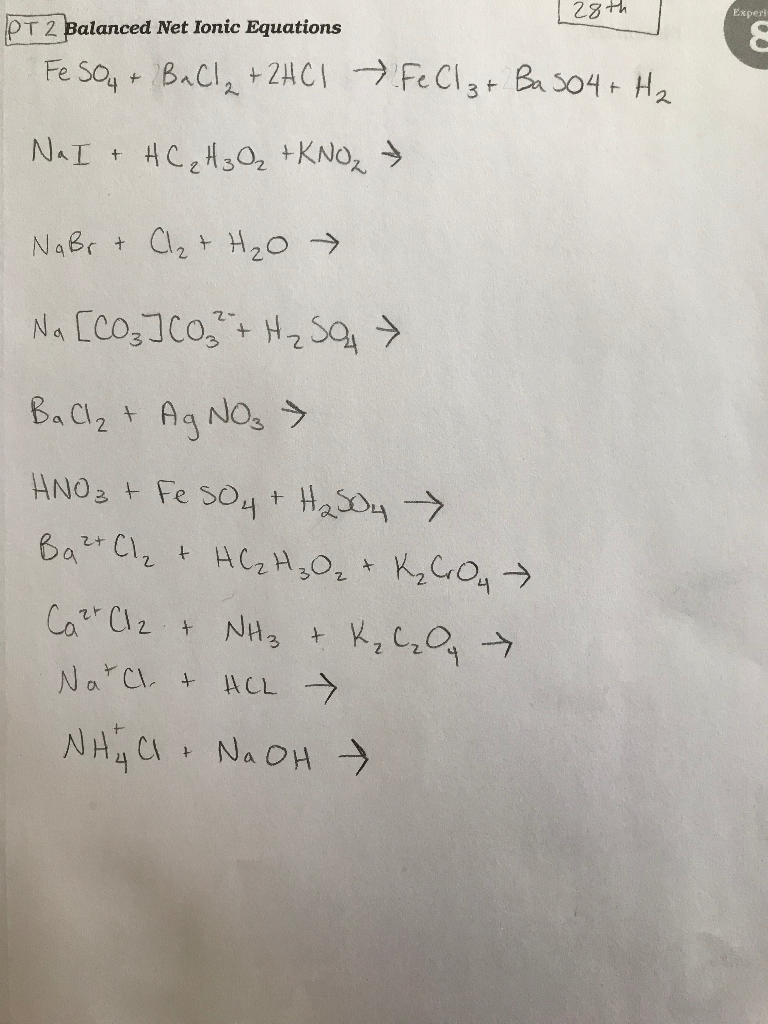 28th
Experi
PT2 Balanced Net Ionic Equations
8
FeSO₄ + BaCl₂ + 2HCl → FeCl₃ + BaSO4 + H₂
NaI + HC₂H₃O₂ + KNO₂ →
NaBr + Cl₂ + H₂O →
Na[CO₃]CO₃²⁻ + H₂SO₄ →
BaCl₂ + AgNO₃ →
HNO₃ + FeSO₄ + H₂SO₄ →
Ba²⁺Cl₂ + HC₂H₃O₂ + K₂CrO₄ →
Ca²⁺Cl₂ + NH₃ + K₂C₂O₄ →
Na⁺Cl + HCL →
NH₄⁺Cl + NaOH →